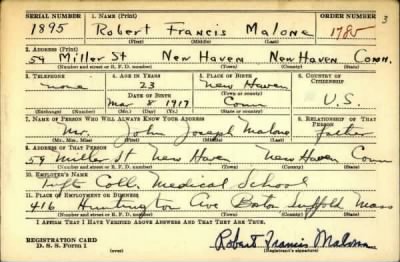 SERIAL NUMBER 1. NAME (Print) ORDER NUMBER
1895 Robert Francis Malone 1785 3
(First) (Middle) (Last)
2. ADDRESS (Print)
54 Miller St New Haven New Haven Conn.
(Number and street or R. F. D. number) (Town) (County) (State)
3. TELEPHONE 4. AGE IN YEARS 5. PLACE OF BIRTH 6. COUNTRY OF CITIZENSHIP
none 23 New Haven
(Town or county)
DATE OF BIRTH
Mar 8 1917 Conn U.S.
(Exchange) (Number) (Mo.) (Day) (Yr.) (State or country)
7. NAME OF PERSON WHO WILL ALWAYS KNOW YOUR ADDRESS 8. RELATIONSHIP OF THAT PERSON
Mr. John Joseph Malone father
(Mr., Mrs., Miss) (First) (Middle) (Last)
9. ADDRESS OF THAT PERSON
54 Miller St. New Haven New Haven Conn
(Number and street or R. F. D. number) (Town) (County) (State)
10. EMPLOYER'S NAME
Tufts Coll. Medical School
11. PLACE OF EMPLOYMENT OR BUSINESS
416 Huntington Ave Boston Suffolk Mass
(Number and street or R. F. D. number) (Town) (County) (State)
I AFFIRM THAT I HAVE VERIFIED ABOVE ANSWERS AND THAT THEY ARE TRUE.
REGISTRATION CARD
D. S. S. Form 1 (over) Robert Francis Malone
(Registrant's signature)